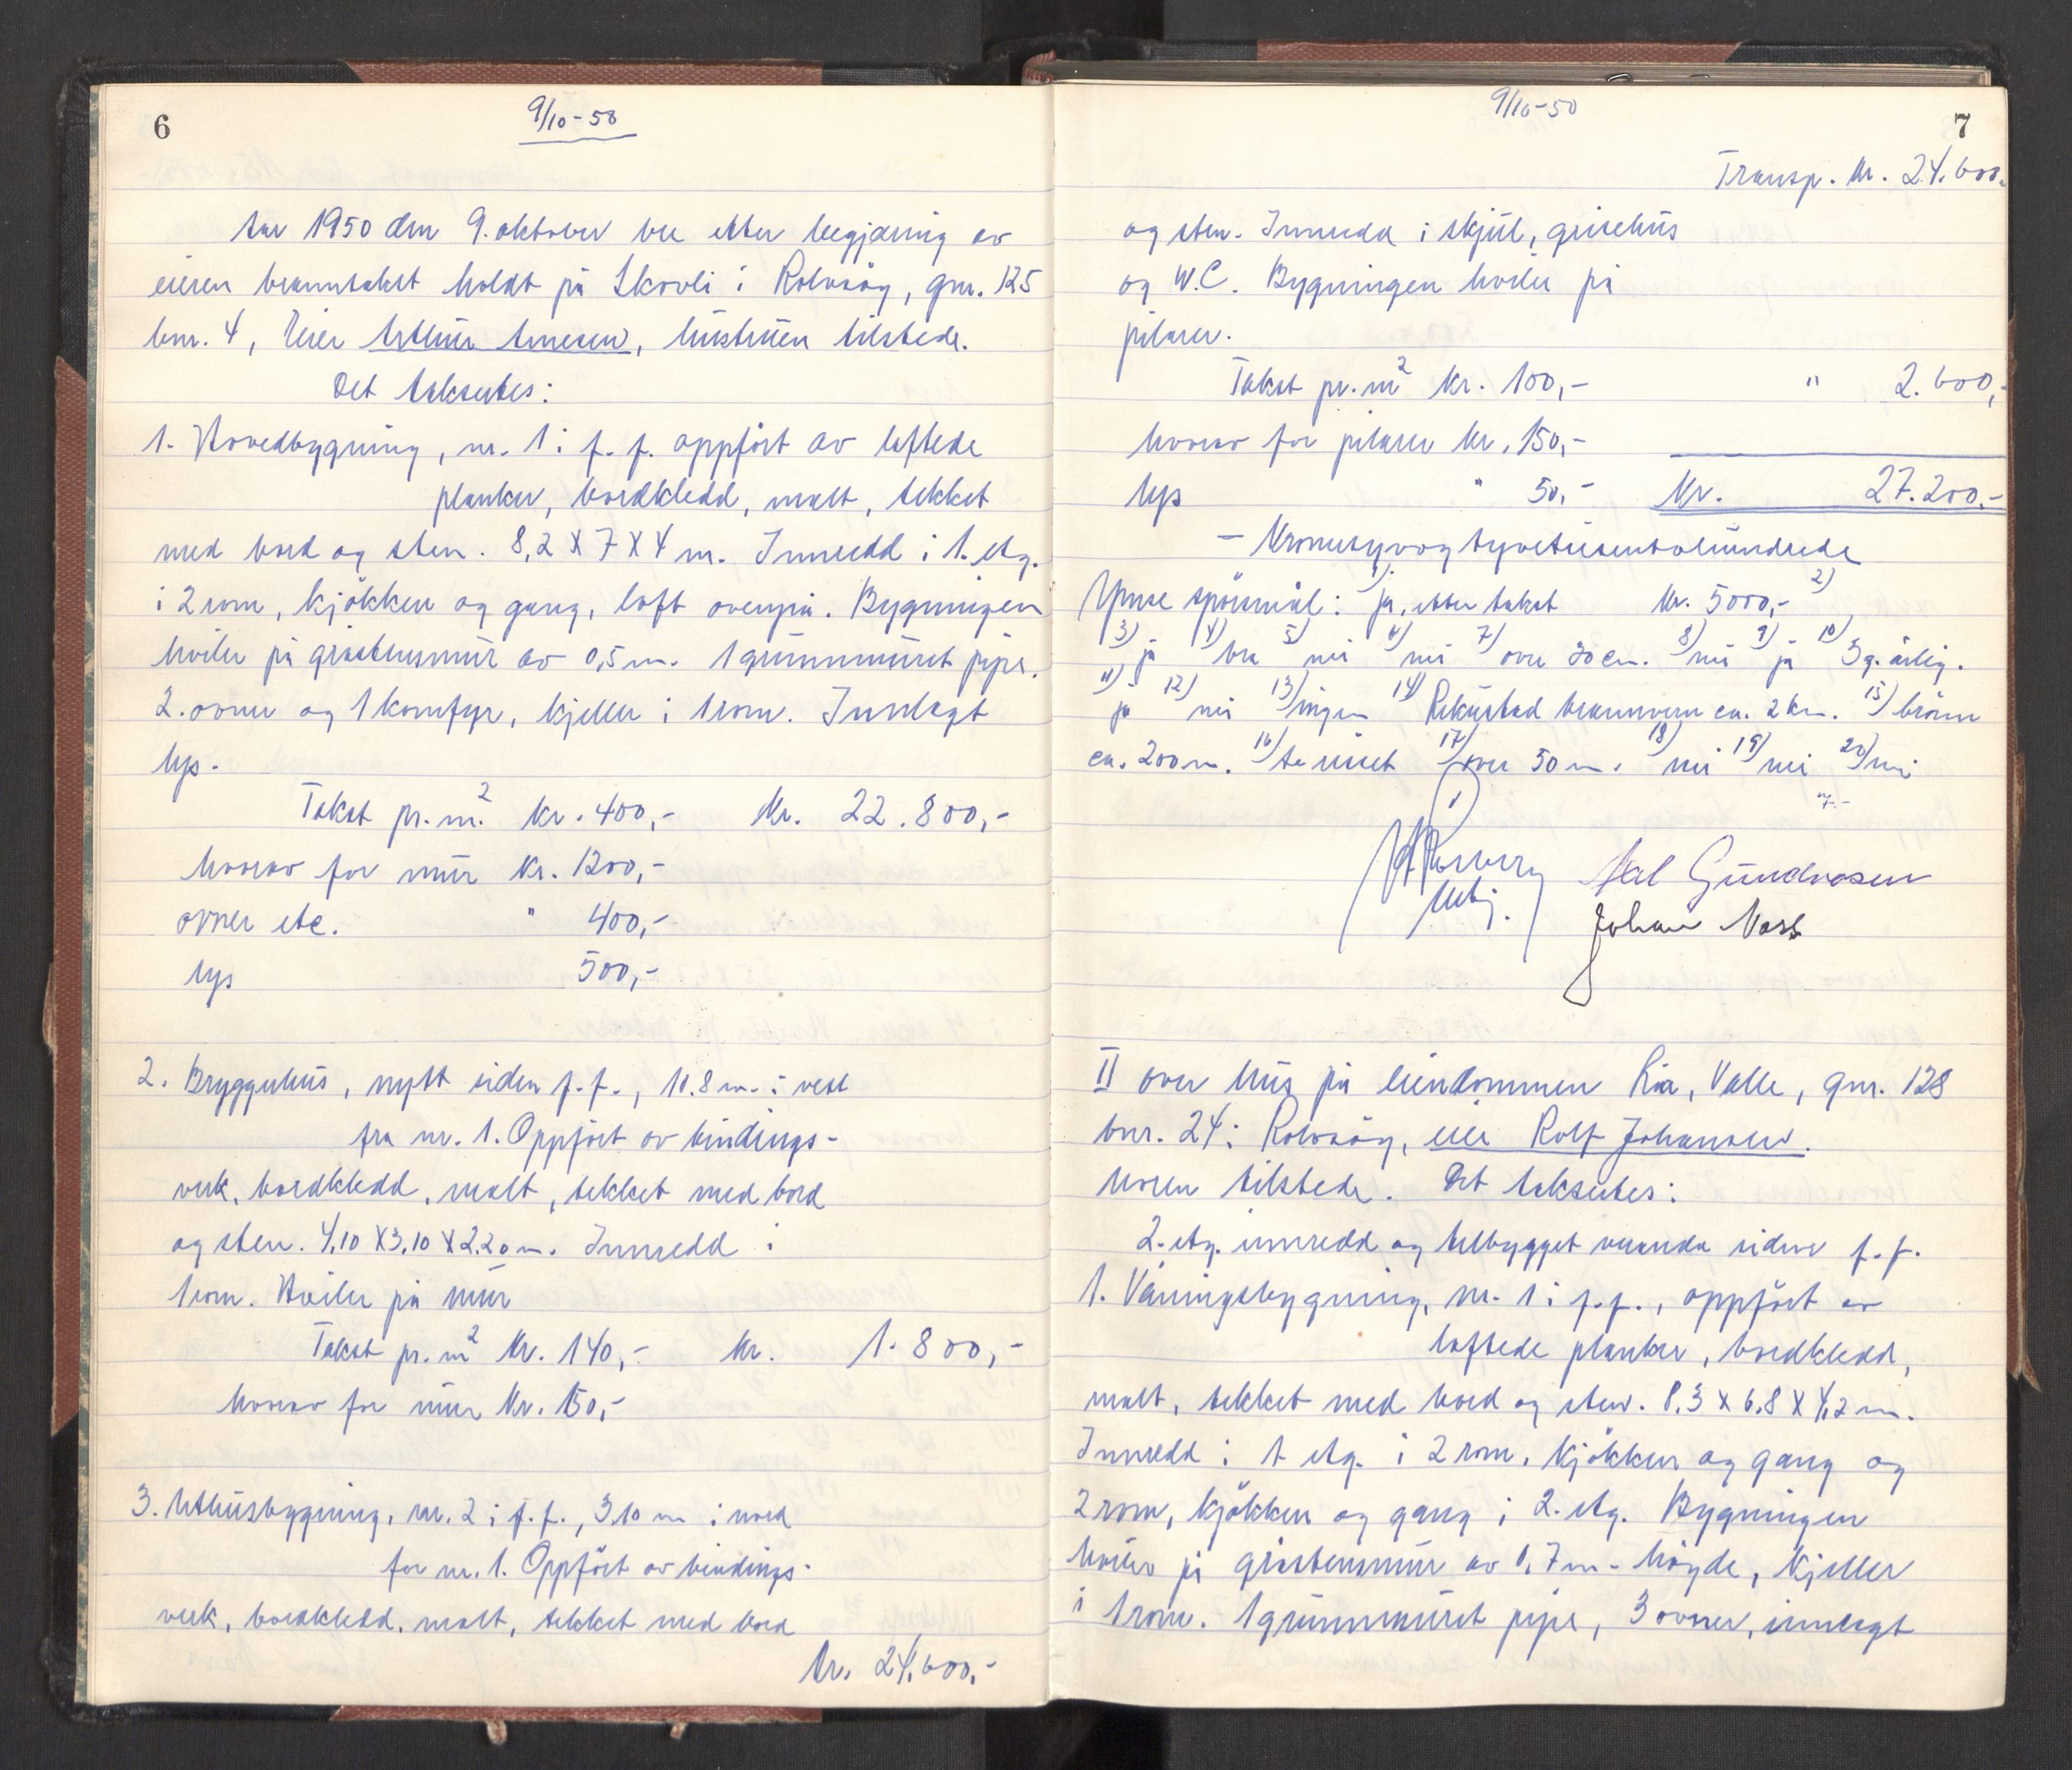 6
9/10-50
År 1950 den 9. oktober ble etter begjæring av
eieren branntakst holdt på Skovli i Rolvsøy, gnr. 125
bnr. 4, Eier Arthur Arnesen, hustruen tilstede.
Det takseres:
1. Hovedbygning, nr. 1 i f. f. oppført av laftede
planker, bordkledd, malt, tekket
med bord og sten. 8,2 X 7 X 4 m. Innredd i 1. etg.
i 2 rom, kjøkken og gang, loft ovenpå. Bygningen
hviler på gråstensmur av 0,5 m. 1 grunnmuret pipe.
2. ovner og 1 komfyr, kjeller i 1 rom. Innlagt
lys.
Takst pr. m.² kr. 400,- Kr. 22.800,-
hvorav for mur Kr. 1200,-
ovner etc. " 400,-
lys 500,-
2. Bryggehus, nytt siden f. f., 10.8 m. i vest
fra nr. 1. Oppført av bindings-
verk, bordkledd, malt, tekket med bord
og sten. 4,10 X 3,10 X 2,20 m. Innredd i
1 rom. Hviler på mur
Takst pr. m² Kr. 140,- Kr. 1.800,-
hvorav for mur Kr. 150,-
3. Uthusbygning, nr. 2 i f. f., 3,10 m i nord
for nr. 1. Oppført av bindings-
verk, bordkledd, malt, tekket med bord
Kr. 24.600,-
9/10-50
7
Transp. Kr. 24.600.
og sten. Innredd i skjul, grisehus
og W.C. Bygningen hviler på
pilarer.
Takst pr. m² Kr. 100,- " 2.600,-
hvorav for pilarer Kr. 150,-
lys " 50,- Kr. 27.200.-
- Kronersyvogtyvetusentohundrede
spørsmål: 1) ja, etter takst Kr. 5000,- 2)
3) ja 4) bra 5) nei 6) nei 7) over 30 cm. 8) nei 9) ja 10) 3 g. årlig.
11) ja 12) nei 13) ingen 14) Rekustad brannvern ca. 2 km. 15) brønn
ca. 200 m. 16) 17) over 50 m. 18) nei 19) nei 20) nei
-7-
Gundersen
Johan
II over hus på eiendommen Lia, Valle, gnr. 128
bnr. 24 i Rolvsøy, eier Rolf Johansen.
konen tilstede. Det takseres:
2. etg. innredd og tilbygget veranda siden f. f.
1. Våningsbygning, nr. 1 i f. f., oppført av
laftede planker, bordkledd,
malt, tekket med bord og sten. 8,3 X 6,8 X 4,2 m.
Innredd i 1 etg. i 2 rom, kjøkken og gang og
2 rom, kjøkken og gang i 2. etg. Bygningen
hviler på gråstensmur av 0,7 m. høyde, kjeller
i 1 rom. 1 grunnmuret pipe, 3 ovner, innlagt